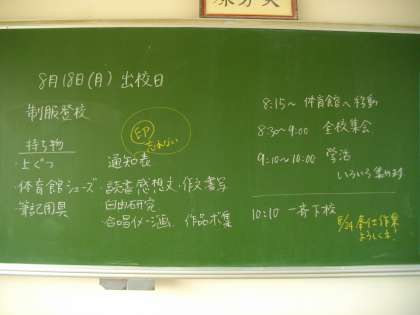 8月18日(月) 出校日
制服登校
持ち物
・上ぐつ 通知表
印 忘れない
・体育館シューズ ・読書感想文・作文書写
・筆記用具 自由研究
・合唱イメージ画、作品ボ集
8:15～ 体育館へ移動
8:30～9:00 全校集会
9:10～10:00 学活
いろいろ集めます
10:10 一斉下校
8/24 奉仕作業
よろしくネ!